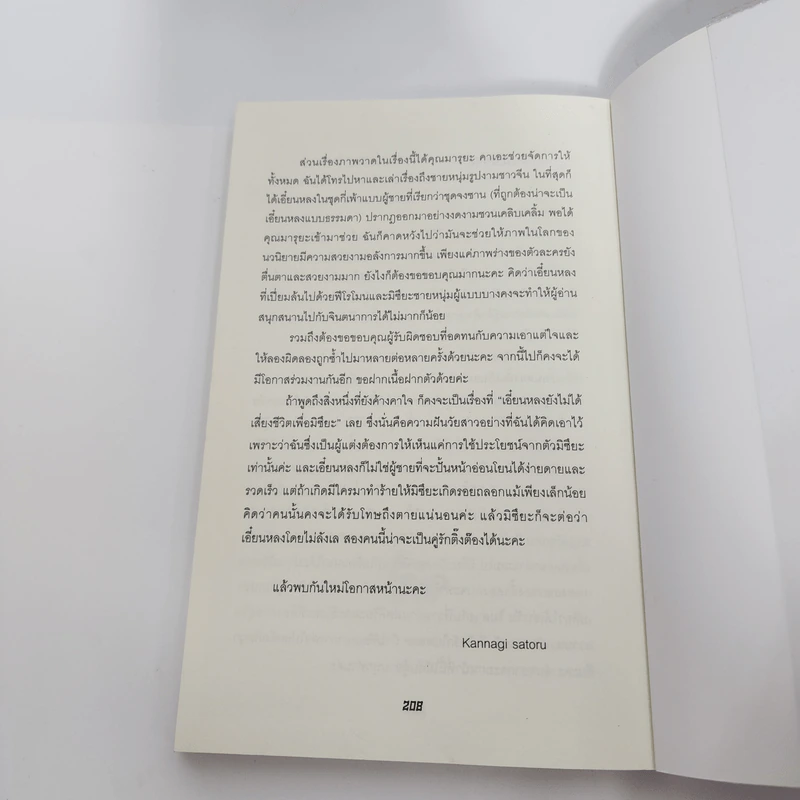 ส่วนเรื่องภาพวาดในเรื่องนี้ได้คุณมารุยะ คาเอะช่วยจัดการให้
ทั้งหมด ฉันได้โทรไปหาและเล่าเรื่องถึงชายหนุ่มรูปงามชาวจีน ในที่สุดก็
ได้เอี๋ยนหลงในชุดกี่เพ้าแบบผู้ชายที่เรียกว่าชุดจงซาน (ที่ถูกต้องน่าจะเป็น
เอี๋ยนหลงแบบธรรมดา) ปรากฏออกมาอย่างงดงามชวนเคลิบเคลิ้ม พอได้
คุณมารุยะเข้ามาช่วย ฉันก็คาดหวังไปว่ามันจะช่วยให้ภาพในโลกของ
นวนิยายมีความสวยงามอลังการมากขึ้น เพียงแค่ภาพร่างของตัวละครยัง
ตื่นตาและสวยงามมาก ยังไงก็ต้องขอขอบคุณมากนะคะ คิดว่าเอี๋ยนหลง
ที่เปี่ยมล้นไปด้วยฟีโรโมนและมิซึยะชายหนุ่มผู้แบบบางคงจะทำให้ผู้อ่าน
สนุกสนานไปกับจินตนาการได้ไม่มากก็น้อย
รวมถึงต้องขอขอบคุณผู้รับผิดชอบที่อดทนกับความเอาแต่ใจและ
ให้ลองผิดลองถูกซ้ำไปมาหลายต่อหลายครั้งด้วยนะคะ จากนี้ไปก็คงจะได้
มีโอกาสร่วมงานกันอีก ขอฝากเนื้อฝากตัวด้วยค่ะ
ถ้าพูดถึงสิ่งหนึ่งที่ยังค้างคาใจ ก็คงจะเป็นเรื่องที่ "เอี๋ยนหลงยังไม่ได้
เสี่ยงชีวิตเพื่อมิซึยะ" เลย ซึ่งนั่นคือความฝันวัยสาวอย่างที่ฉันได้คิดเอาไว้
เพราะว่าฉันซึ่งเป็นผู้แต่งต้องการให้เห็นแค่การใช้ประโยชน์จากตัวมิซึยะ
เท่านั้นค่ะ และเอี๋ยนหลงก็ไม่ใช่ผู้ชายที่จะปั้นหน้าอ่อนโยนได้ง่ายดายและ
รวดเร็ว แต่ถ้าเกิดมีใครมาทำร้ายให้มิซึยะเกิดรอยถลอกแม้เพียงเล็กน้อย
คิดว่าคนนั้นคงจะได้รับโทษถึงตายแน่นอนค่ะ แล้วมิซึยะก็จะต่อว่า
เอี๋ยนหลงโดยไม่ลังเล สองคนนี้น่าจะเป็นคู่รักติ๊งต๊องได้นะคะ
แล้วพบกันใหม่โอกาสหน้านะคะ
Kannagi satoru
208